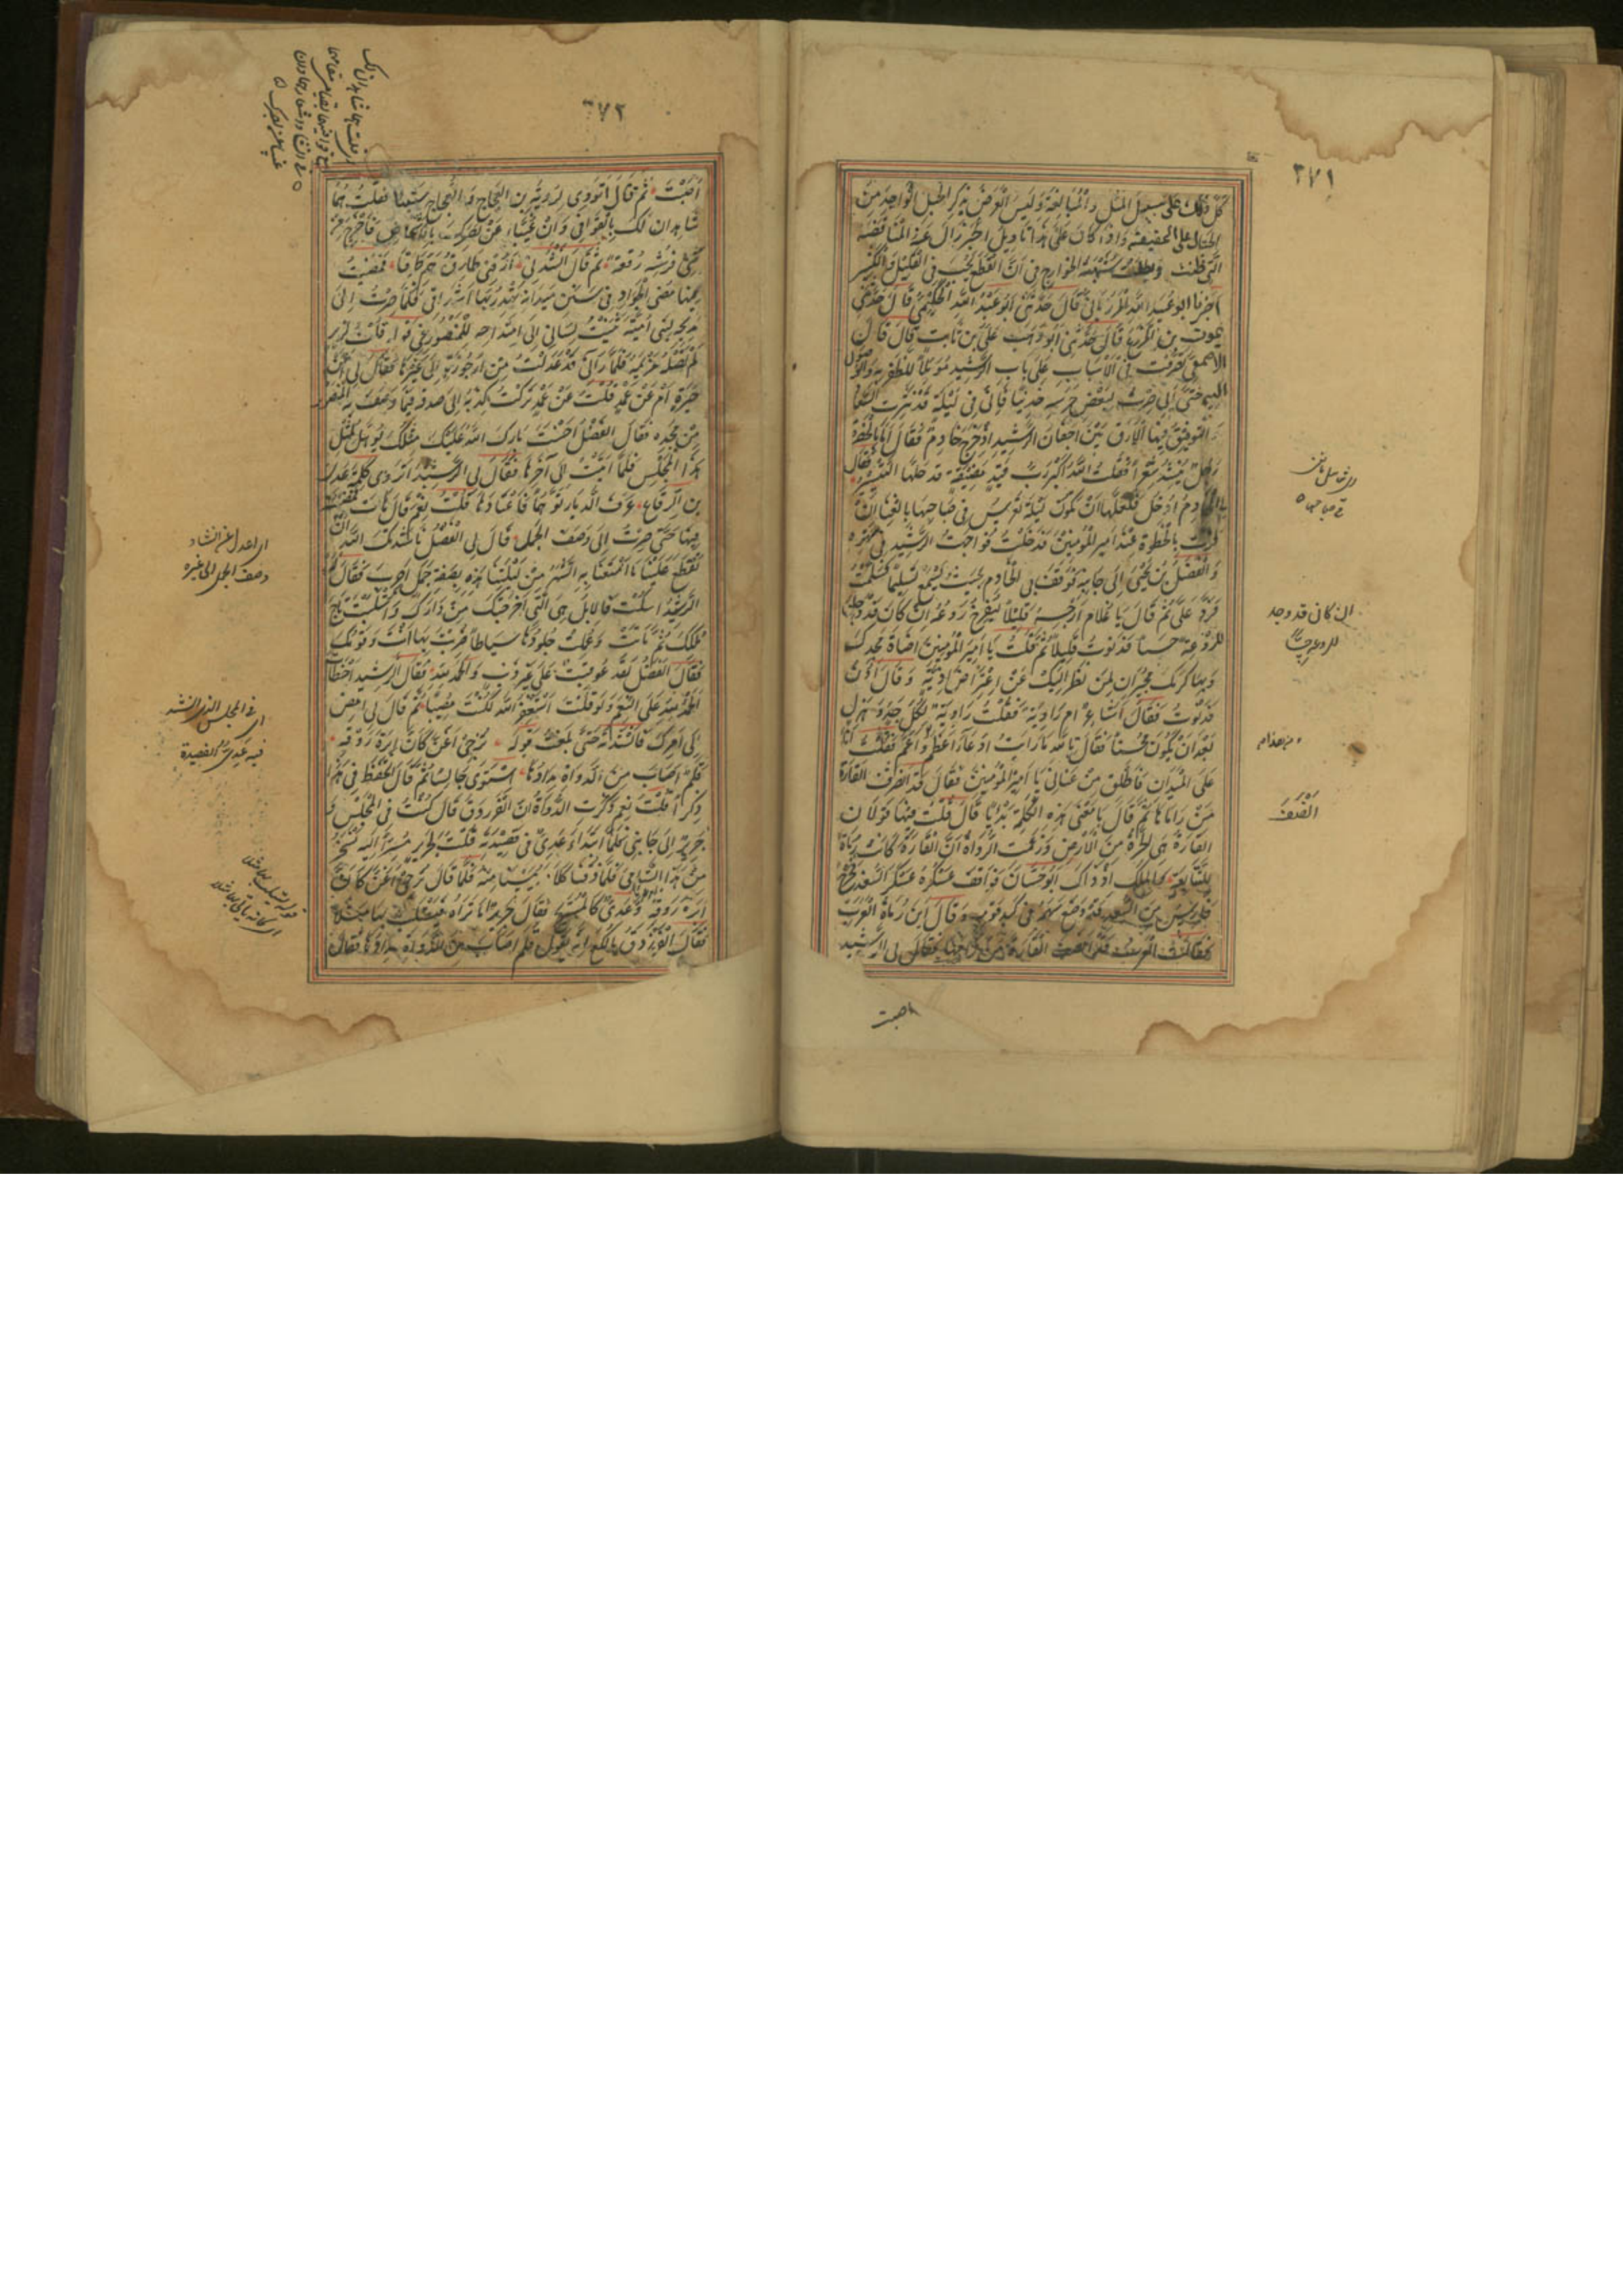 ٣٧١
كُلّ ذلك على سبيل المثل والمُبَالَغَة وَلَيسَ الغَرَضُ بذِكر الحَبل الواحِد مِنَ
الحِبَال على الحقيقة وَاذا كَانَ عَلَى هذا تَاويلُ الخبر زَالَ عَنه المُنَاقَضَة
الّتى ظُنّت وبطلت شُبْهَةُ الخوارج فى اَنّ القَطْعَ يَجِب فى القليل والكثير
اَخبرنا ابو عُبَيد الله المَرْزُبَانِىّ قَالَ حَدَّثَنى ابو عَبْدُ الله الحكِيْمِىّ قَالَ حَدَّثَنى
يموت بن المُزَرّع قَالَ حَدَّثَنى اَبُو وَهْب عَلىّ بن ثابت قال قال
الاصمعىّ تَصَرّفَت فى الاَسْبَاب عَلى بَاب الرّشيد مُؤَمّلاً للظفر به والوُصُول
اليه حَتّى اِنّى صِرْتُ لبَعْض حَرَسِه خَدِيْنًا فَاِنّى فى لَيْلَة قَدْ نَثَرَت السّعادة
وَالتوفيق فيها الاَرَق بَيْنَ اَجْفَان الرّشيد اِذ خَرَجَ خَادِمٌ فَقَالَ اَمَا بِالحَضْرَة
رَجُلٌ يُنْشِدُ شِعرًا فقُلتُ اللهُ اكبر رُبّ قَيْد مَضِيقَة قد حَلّهَا التَيْسِير فَقَالَ
لى الخَادِمُ اُدْخُل فَلَعَلّهَا اَنْ تكُونَ لَيْلَة تعريس فى صَبَاحِهَا بالغِنا اِنْ
فُزْتَ بالحُظْوَة عِنْدَ اَمير المُؤمنِينَ فَدَخَلتُ فَوَاجَهتُ الرّشِيد فى بَهْوِه
وَالفَضلُ بن يَحْيَى اِلى جَانِبِهِ فَوَقَفَ بى الخَادِم بحَيث يَسْمَع تَسلِيمى فَسَلّمْتُ
فَرَدّ عَلىّ ثُمّ قالَ يا غُلامُ اَرِحْهُ قَلِيْلاً لِيَفْرُخَ رَوعُهُ ان كَانَ قَد وَجَدَ
للرّوْعَةِ حِسًا فَدَنَوتُ قَلِيلاً ثُمّ قُلتُ يا اَمِيرَ المُؤمنِينَ اِضَاءَةُ مَجدِكَ
وَبَهاء كَرَمِكَ مُجِيْرَانِ لِمَنْ نَظَرَ اِليْكَ عَنْ اِعتِرَاض اَذِيّة وَقالَ اُدْنُ
فَدَنَوتُ فَقَالَ اَشَاعِرٌ اَم رَاوِيَةٌ فَقُلْتُ رَاوِيَةٌ لِكُلّ جِدّ وَهَزْل
بَعْدَ اَنْ يَكُونَ مُحْسِنًا فَقَالَ تاللهِ مَا رَاَيتُ ادّعَاءً اَعظَم وَاَعَمّ فَقُلتُ اَنَا
عَلَى المَيْدَانِ فَاَطْلِق مِنْ عِنَانى يا امِيرَ المُؤمِنِينَ فَقَالَ قَد اَنصَفَ القَارَةَ
مَنْ رَامَاهَا ثُمّ قَالَ مَا مَعْنَى هٰذِهِ الكَلِمَة بَدئيًا قَالَ قُلتُ فيهَا قَولانِ
القَارَةُ هِى الحَرّةُ مِنَ الاَرْضِ وَزَعَمَت الرّوَاةُ اَنّ القَارَةَ كَانَت رُمَاةً
للتَبَابِعَةِ وَالمَلِكُ اِذ ذَاكَ اَبُو حَسّانَ فَوَاقَفَ عَسكَرُهُ عَسكَرَ السُغْدِ فَخَرَجَ
فَارِسٌ مِنَ السُغْدِ قَدْ وَضَعَ سَهْمَهُ فى كَبدِ قَوْسِه وَقَالَ اَيْنَ رُمَاةُ العَرَبِ
فَقَالَت العَرَبُ قَدْ اَنصَفَ القَارَةَ مَن رَامَاهَا فَقَالَ لى الرّشِيد
اصبت
فى صباحها ٥
ان كانى قد وجد
للروعة حسًّا
اَنْصَفَ
٣٧٢
اَصَبْتَ ثُمّ قَالَ اَتَروِى لِرُوبَةَ بن العَجّاج وَ العَجّاج شَيْئًا فَقُلتُ هُمَا
شَاهِدَانِ لَكَ بِالقَوَافى وَاِنْ غُيّبَا عَنْ بَصَرِكَ بِالاَشخَاص فَاَخْرَجَ مِنْ
ثِنْى فَرْشِه رُقعَةً ثُمّ قَالَ اَنْشِدْنى اَرَّقَنى طَارِقُ هَمّ طَرَقَا فَمَضَيْتُ
فيها مُضِىّ الجَوَادِ فى سَنَن مَيدَانِه تَهْدِرُ بِهَا اَشدَاقى فَلَمّا صِرْتُ اِلى
مَدِيحِه لِبَنى اُمَيّةَ ثَنَيْتُ لِسَانى اِلى امتِدَاحِه لِلمَنصُور فى قَولِه قُلْتُ لِزِيْرٍ
لَمْ تَصِلْهُ مَرْيَمُهْ فَلَمّا رَاٰنى قَدْ عَدَلْتُ مِن اُرجُوزَةٍ اِلى غَيْرِهَا فَقَالَ لى اَعَنْ
حَيْرَةٍ اَم عَنْ عَمْدٍ قُلتُ عَنْ عَمْدٍ تَرَكتُ كِذْبَهُ اِلى صِدقِه فيمَا وَصَفَ بِه المَنْصُور
مِنْ مَجْدِه فَقَالَ الفَضْلُ اَحْسَنْتَ بَارَكَ اللهُ عَلَيْكَ مِثلُكَ يُؤَهّلُ لِمِثْلِ
هٰذَا المَجْلِسِ فَلَمّا اَتَيْتُ اِلى آخِرِهَا فَقَالَ لى الرّشِيدُ اَتَروِى كَلِمَةَ عَدِىّ
بن الرّقَاعِ عَرَفَ الدّيَارَ تَوَهّمًا فَاعْتَادَهَا قُلْتُ نَعَمْ قَالَ هَاتِ فَمَضَيْتُ
فِيهَا حَتّى صِرْتُ اِلى وَصفِ الجَمَلِ قَالَ لى الفَضْلُ نَاشَدْتُكَ اللهَ اَنْ
تَقْطَعَ عَلَيْنَا مَا اُمْتِعْنَا بِه مِنَ السّهَرِ فى لَيْلَتِنَا هٰذِه بِصِفَةِ جَمَلٍ اَجرَبَ فَقَالَ لَهُ
الرّشِيدُ اُسْكُتْ فَالاِبِلُ هِىَ الّتِى اَخرَجَتْكَ مِنْ دَارِكَ وَاستَلَبَتْ تَاجَ
مُلكِكَ ثُمّ مَاتَتْ وَعُمِلَت جُلُودُهَا سِيَاطًا ضُرِبتَ بِهَا اَنْتَ وَقَومُكَ
فَقَالَ الفَضْلُ لَقَدْ عُوقِبْتُ عَلى غَيْرِ ذَنبٍ وَالحَمْدُ للهِ فَقَالَ الرّشِيد اَخْطَاتَ
الحَمدُ للهِ عَلى النّعَمِ وَلَو قُلْتَ اَستَغْفِرُ اللهَ لَكُنْتَ مُصِيْبًا ثُمّ قَالَ لى اِمْضِ
فى اَمرِكَ فَاَنْشَدْتُه حَتّى بَلَغتُ قَولَهُ تُزجِى اَغَنّ كَاَنّ اِبرَةَ رَوقِه
قَلَمٌ اَصَابَ مِنَ الدّوَاةِ مِدَادَهَا اِستَوَى جَالِسًا ثُمّ قَالَ اَتَحْفَظُ فى هٰذَا
ذِكرًا قُلْتُ نَعَم ذَكَرَت الرّوَاةُ اَنّ الفَرَزدَقَ قَالَ كُنْتُ فى المَجْلِسِ وَ
جَرِيرٌ اِلى جَانِبى فَلَمّا ابتَدَاَ عَدِىّ فى قَصِيْدَتِه قُلتُ لِجَرِير مُسِرًّا اِلَيهِ نَسْخَرُ
مِنْ هٰذَا الشّامِىّ فَلَمّا ذُقْنَا كَلامَهُ يَئِسْنَا مِنْهُ فَلَمّا قَالَ تُزجِى اَغَنّ كَاَنّ
اِبرَةَ رَوقِه وَعَدِىّ كَالمُسْتَرِيح فَقَالَ جَرِيرٌ اَمَا تَرَاهُ يَستَلِبُ بِهَا مَثَلاً
فَقَالَ الفَرَزدَقُ يَا لُكَعُ اِنّهُ يَقُولُ قَلَمٌ اَصَابَ مِنَ الدّوَاةِ مِدَادَهَا فَقَالَ
اى اعدل عن انشاد
وصف الجمل الى غيره
اى فى المجلس الذى انشد
فيه عدى القصيدة